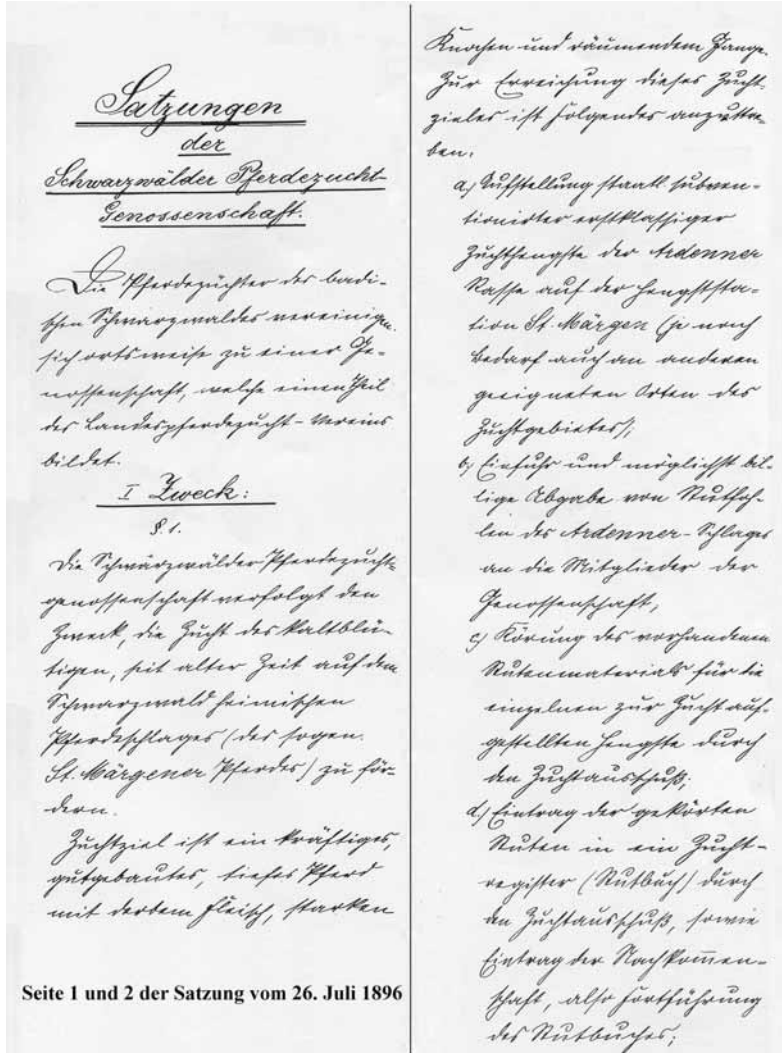 Satzungen
der
Schwarzwälder Pferdezucht-
Genossenschaft.
Die Pferdezüchter des badi-
schen Schwarzwaldes vereinigen
sich ortsweise zu einer Ge-
nossenschaft, welche einen Theil
des Landespferdezucht-Vereins
bildet.
I Zweck:
§. 1.
Die Schwarzwälder Pferdezucht-
genossenschaft verfolgt den
Zweck, die Zucht des kaltblü-
tigen, seit alter Zeit auf dem
Schwarzwald heimischen
Pferdeschlages (des sogen.
St. Märgener Pferdes) zu för-
dern.
Zuchtziel ist ein kräftiges,
gutgebautes, tiefes Pferd
mit derbem Fleisch, starken
Seite 1 und 2 der Satzung vom 26. Juli 1896
Knochen und räumendem Gange.
Zur Erreichung dieses Zucht-
zieles ist Folgendes anzustre-
ben.
a) Aufstellung staatl. subven-
tionirter erstklassiger
Zuchthengste der Ardenner
Rasse auf der Hengststa-
tion St. Märgen (je nach
Bedarf auch an anderen
geeigneten Orten des
Zuchtgebietes);
b) Einfuhr und möglichst bil-
lige Abgabe von Stutfoh-
len des Ardenner-Schlages
an die Mitglieder der
Genossenschaft,
c) Körung des vorhandenen
Stutenmaterials für die
einzelnen zur Zucht auf-
gestellten Hengste durch
den Zuchtausschuß;
d) Eintrag der gekörten
Stuten in ein Zucht-
register (Stutbuch) durch
den Zuchtausschuß, sowie
Eintrag der Nachkom̄en-
schaft, also Fortführung
des Stutbuches;